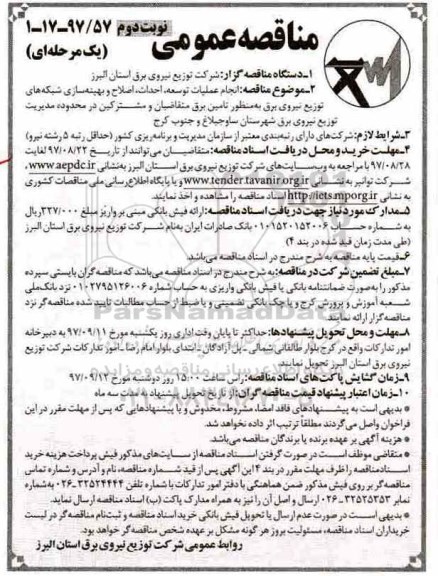 مناقصه عمومی
نوبت دوم ۹۷/۵۷-۱۷-۱
(یک مرحله‌ای)
۱-دستگاه مناقصه گزار: شرکت توزیع نیروی برق استان البرز
۲-موضوع مناقصه: انجام عملیات توسعه، احداث، اصلاح و بهینه‌سازی شبکه‌های
توزیع نیروی برق به‌منظور تامین برق متقاضیان و مشترکین در محدوده مدیریت
توزیع نیروی برق شهرستان ساوجبلاغ و جنوب کرج
۳-شرایط لازم: شرکت‌های دارای رتبه‌بندی معتبر از سازمان مدیریت و برنامه‌ریزی کشور (حداقل رتبه ۵ رشته نیرو)
۴-مهلت خرید و محل دریافت اسناد مناقصه: متقاضیان می‌توانند از تاریخ ۹۷/۰۸/۲۲ لغایت
۹۷/۰۸/۲۸ با مراجعه به وب‌سایت‌های شرکت توزیع نیروی برق استان البرز به‌نشانی www.aepdc.ir،
شرکت توانیر به نشانی www.tender.tavanir.org.ir و یا پایگاه اطلاع‌رسانی ملی مناقصات کشوری
به نشانی http://iets.mporg.ir اسناد مناقصه را مشاهده و اخذ نمایند.
۵-مدارک مورد نیاز جهت دریافت اسناد مناقصه: ارائه فیش بانکی مبنی بر واریز مبلغ ۳۲۷/۰۰۰ ریال
به شماره حساب ۰۱۰۱۵۲۰۱۵۲۰۰۶ بانک صادرات ایران به‌نام شرکت توزیع نیروی برق استان البرز
(طی مدت زمان قید شده در بند ۴)
۶-قیمت پایه مناقصه به شرح مندرج در اسناد مناقصه می‌باشد.
۷-مبلغ تضمین شرکت در مناقصه: به شرح مندرج در اسناد مناقصه می‌باشد که مناقصه گران بایستی سپرده
مذکور را به‌صورت ضمانتنامه بانکی یا فیش بانکی واریزی به حساب شماره ۰۱۰۲۷۹۵۱۲۶۰۰۶ نزد بانک ملی
شعبه آموزش و پرورش کرج و یا چک بانکی تضمینی و یا ضبط از حساب مطالبات تایید شده مناقصه‌گر نزد
مناقصه گزار ارائه نمایند.
۸-مهلت و محل تحویل پیشنهادها: حداکثر تا پایان وقت اداری روز یکشنبه مورخ ۹۷/۰۹/۱۱ به دبیرخانه
امور تدارکات واقع در کرج بلوار طالقانی شمالی-پل آزادگان-ابتدای بلوار امام رضا-امور تدارکات شرکت توزیع
نیروی برق استان البرز تحویل نمایند.
۹-زمان گشایش پاکت‌های اسناد مناقصه: راس ساعت ۱۵:۰۰ روز دوشنبه مورخ ۹۷/۰۹/۱۲
۱۰-زمان اعتبار پیشنهاد قیمت مناقصه گران: از تاریخ تحویل پیشنهاد به مدت سه ماه
* بدیهی است به پیشنهادهای فاقد امضا، مشروط، مخدوش و یا پیشنهادهایی که پس از مهلت مقرر در این
فراخوان واصل می‌گردند مطلقا ترتیب اثر داده نخواهد شد.
* هزینه آگهی بر عهده برنده یا برندگان مناقصه می‌باشد.
* متقاضی موظف است در صورت گرفتن اسناد مناقصه از سایت‌های مذکور فیش پرداخت هزینه خرید
اسناد مناقصه را ظرف مهلت مقرر در بند ۴ این آگهی پس از قید شماره مناقصه، نام و آدرس و شماره تماس
مناقصه گر بر روی فیش مذکور ضمن هماهنگی با دفتر امور تدارکات با شماره تلفن ۳۲۵۲۴۴۴۴-۰۲۶ به شماره
نمابر ۳۲۵۲۵۲۵۳-۰۲۶ ارسال و اصل آن را نیز به همراه مدارک پاکت (ب) اسناد مناقصه ارسال نماید.
* بدیهی است در صورت عدم ارسال یا تحویل فیش بانکی خرید اسناد مناقصه و ثبت‌نام مناقصه گر در لیست
خریداران اسناد مناقصه، مسئولیت بروز هر گونه مشکل بر عهده شخص مناقصه‌گر خواهد بود.
روابط عمومی شرکت توزیع نیروی برق استان البرز